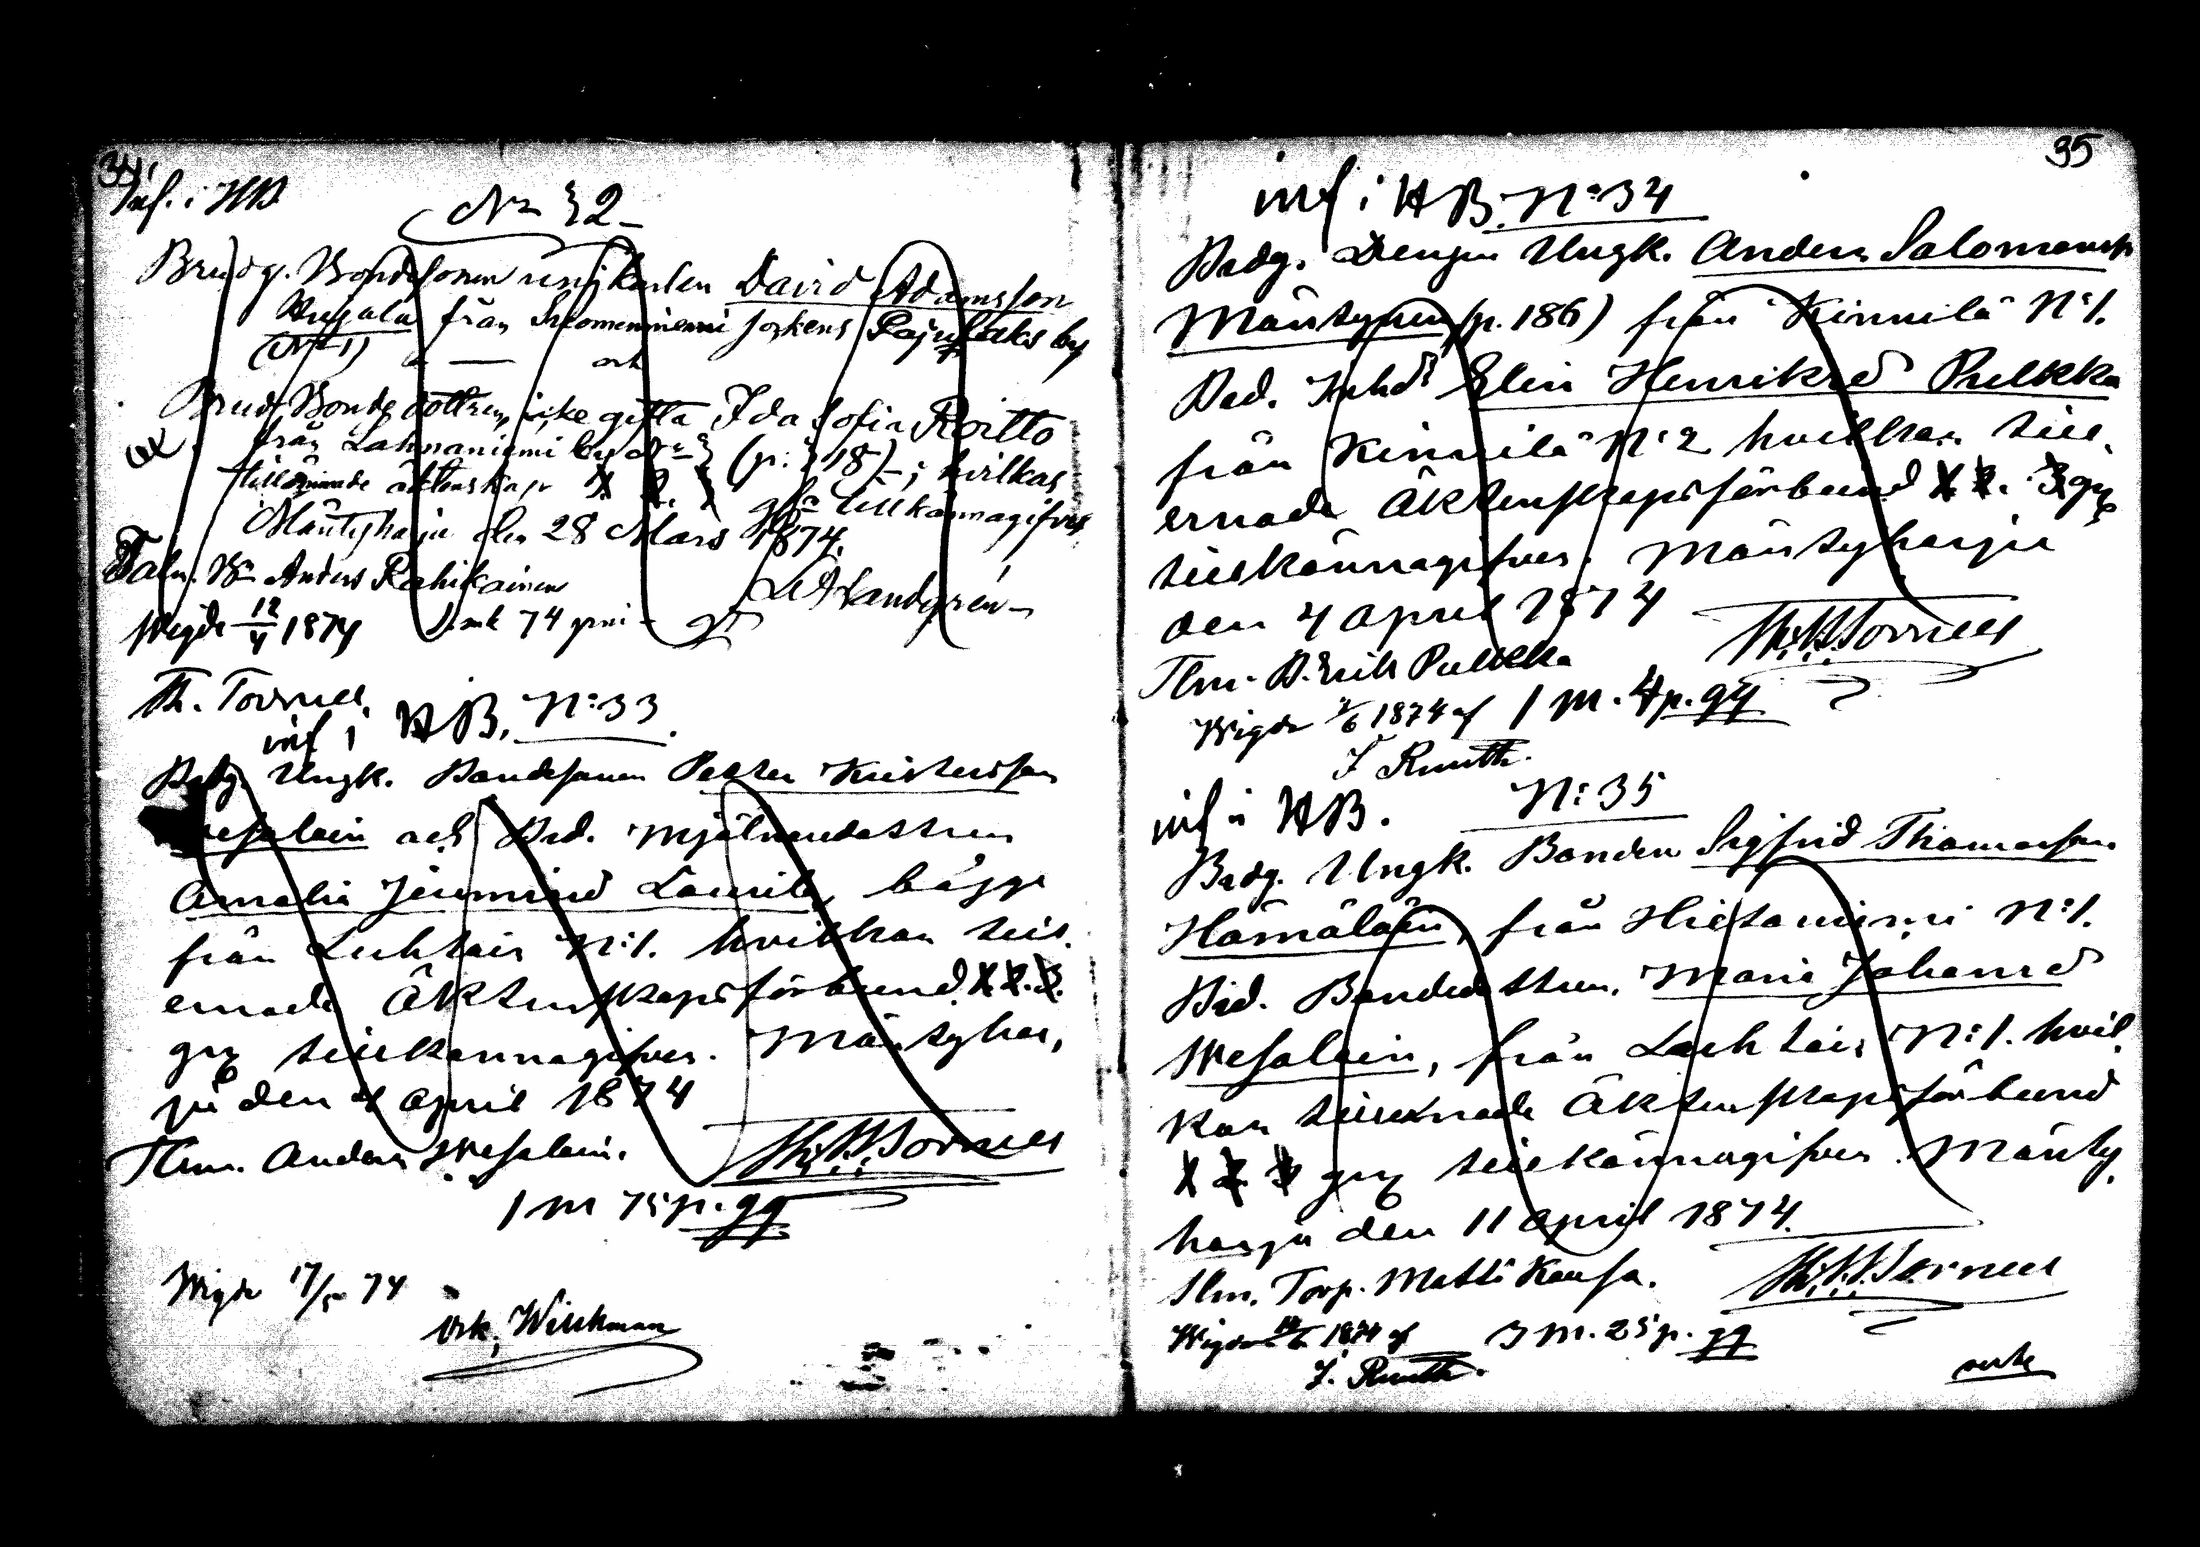 34.
Inf. i HB
No 32
Brudg. Bondesonen ungkarlen David Adamsson
från Suomenniemi sockens by
(No 1) och
Brud. Bondedottren, icke gifta Ida Sofia Roitto
från Lahnaniemi by No 3 (p. 318); hvilkas
äktenskap 1 2. 3 gn tillkännagifves
Mäntyharju den 28 Mars 1874.
Talm. Bn Anders Rahikainen
L A Sandgrén
Wigde 12/4 1874 1 mk 74 pni
Th. Tornell
inf i HB. N:33
Brdg. Ungk. Bondesonen Petter Kristersson
Wesalain och Brd. Mjölnaredottren
Amalia Jeremiasd Laurila bägge
från Luhtais N:1. hvilkas till-
ernade Äktenskapsförbund 1. 2. 3.
gng tillkännagifves. Mäntyhar,
ju den 4 April 1874
Tlm. Anders Wesalain.
Th. H. Tornell
1 m 75 p. gg
Wigde 17/5 74
Wickman
35
inf i HB. N:34
Brdg. Drengen Ungk. Anders Salomonss
Mäntynen (p. 186) från Kinnilä N:1.
Brd. Inhd Elin Henriksd Pulkka
från Kinnilä N:2 hvilkas till-
ernade Äktenskapsförbund 1. 2. 3 gng
tillkännagifves. Mäntyharju
den 4 April 1874
Th. H. Tornell
Tlm. B. Erik Pulkka
Wigde 7/6 1874 af 1 m. 4 p. gg
F Ruuth.
inf i HB. N:35
Brdg. Ungk. Bonden Sigfrid Thomasson
Hämäläin, från Hietaniemi N:1.
Brd. Bondedottren, Maria Johansd
Wesalain, från Luhtais N:1. hvil,
kas tillernade Äktenskapsförbund
1 2 3 gng tillkännagifves. Mänty,
harju den 11 April 1874.
Tlm. Torp. Matti Kausa.
Th. H. Tornell
Wigde 14/6 1874 af 3 m. 25 p. gg
F. Ruuth.
verte